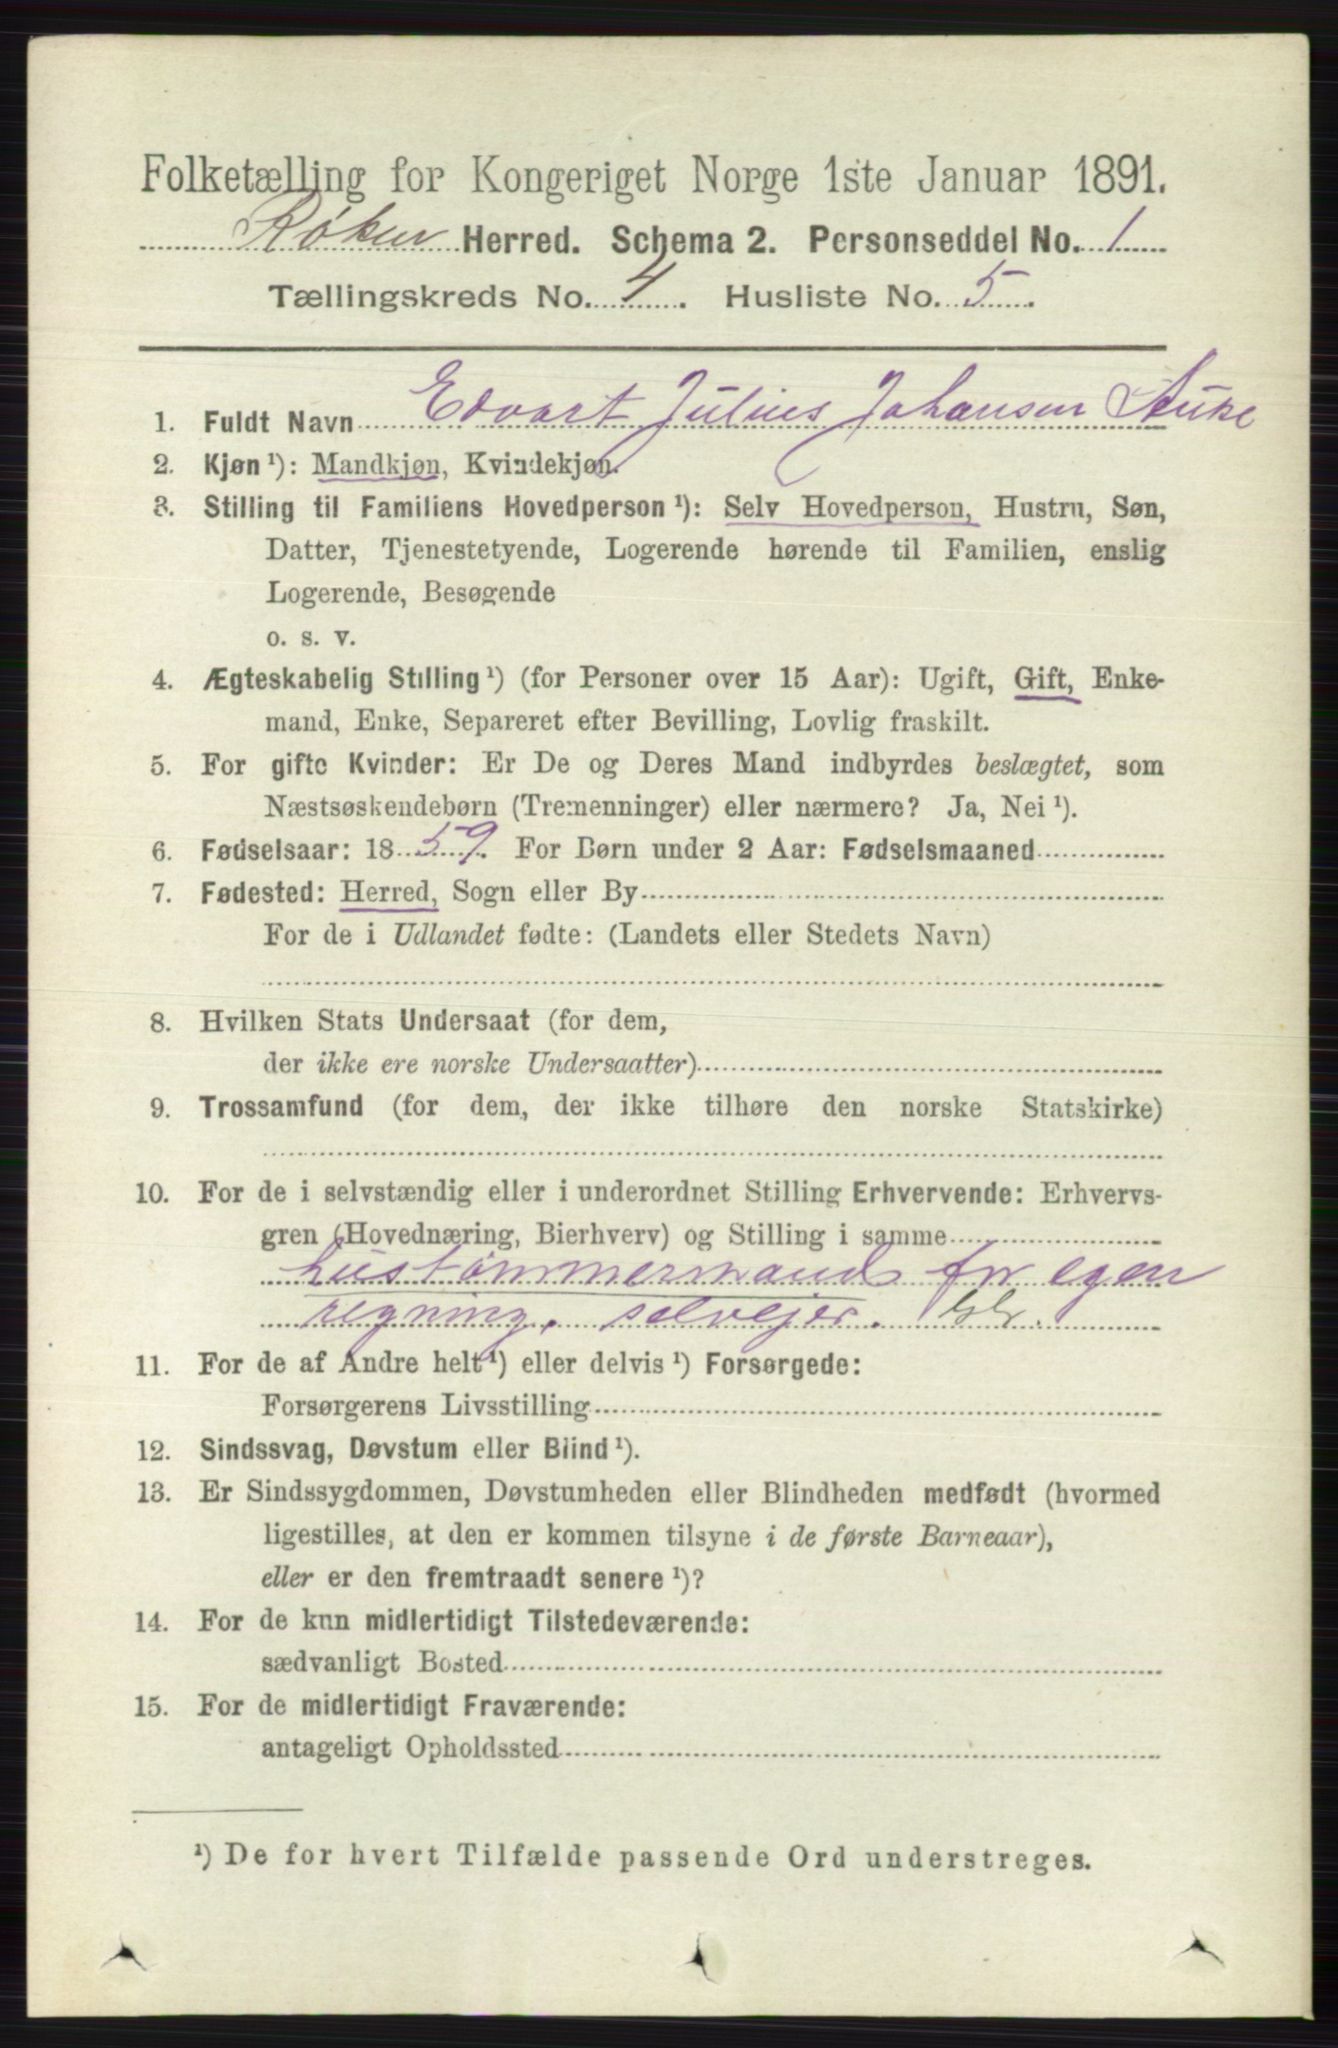 Folketælling for Kongeriget Norge 1ste Januar 1891.
Røken Herred. Schema 2. Personseddel No. 1
Tællingskreds No. 4. Husliste No. 5.
1. Fuldt Navn Edvart Julius Johansen
2. Kjøn ¹): Mandkjøn, Kvindekjøn.
3. Stilling til Familiens Hovedperson ¹): Selv Hovedperson, Hustru, Søn,
Datter, Tjenestetyende, Logerende hørende til Familien, enslig
Logerende, Besøgende
o. s. v.
4. Ægteskabelig Stilling ¹) (for Personer over 15 Aar): Ugift, Gift, Enke-
mand, Enke, Separeret efter Bevilling, Lovlig fraskilt.
5. For gifte Kvinder: Er De og Deres Mand indbyrdes beslægtet, som
Næstsøskendebørn (Tremenninger) eller nærmere? Ja, Nei ¹).
6. Fødselsaar: 1859. For Børn under 2 Aar: Fødselsmaaned
7. Fødested: Herred, Sogn eller By
For de i Udlandet fødte: (Landets eller Stedets Navn)
8. Hvilken Stats Undersaat (for dem,
der ikke ere norske Undersaatter)
9. Trossamfund (for dem, der ikke tilhøre den norske Statskirke)
10. For de i selvstændig eller i underordnet Stilling Erhvervende: Erhvervs-
gren (Hovednæring, Bierhverv) og Stilling i samme
hustømmermand for egen
regning. selvejer.
11. For de af Andre helt ¹) eller delvis ¹) Forsørgede:
Forsørgerens Livsstilling
12. Sindssvag, Døvstum eller Blind ¹).
13. Er Sindssygdommen, Døvstumheden eller Blindheden medfødt (hvormed
ligestilles, at den er kommen tilsyne i de første Barneaar),
eller er den fremtraadt senere ¹)?
14. For de kun midlertidigt Tilstedeværende:
sædvanligt Bosted
15. For de midlertidigt Fraværende:
antageligt Opholdssted
¹) De for hvert Tilfælde passende Ord understreges.